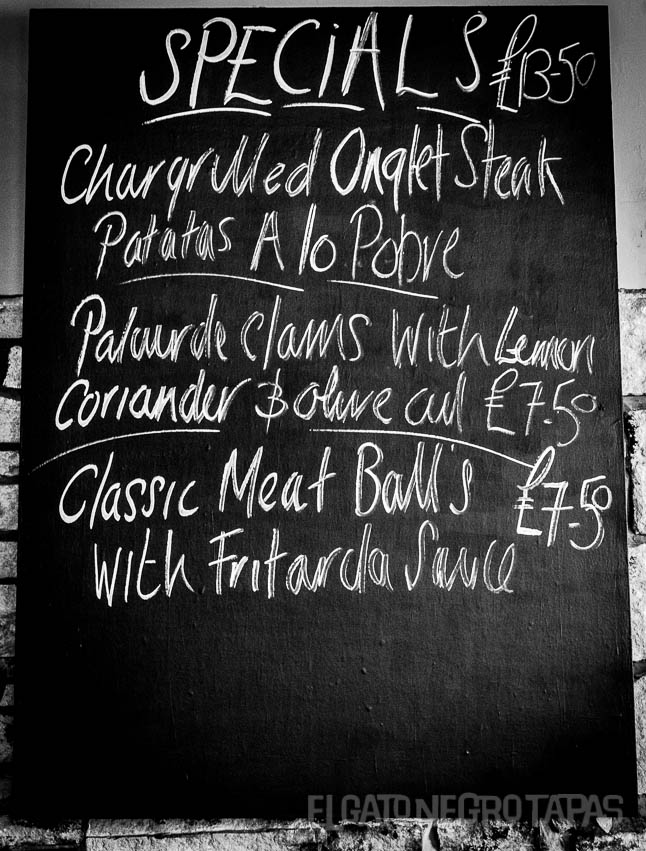 SPECIALS £13-50
Chargrilled Onglet Steak
Patatas A lo Pobre
Palourde Clams With Lemon
Coriander & olive oil £7-50
Classic Meat Ball's £7-50
With Fritarda Sauce
EL GATO NEGRO TAPAS